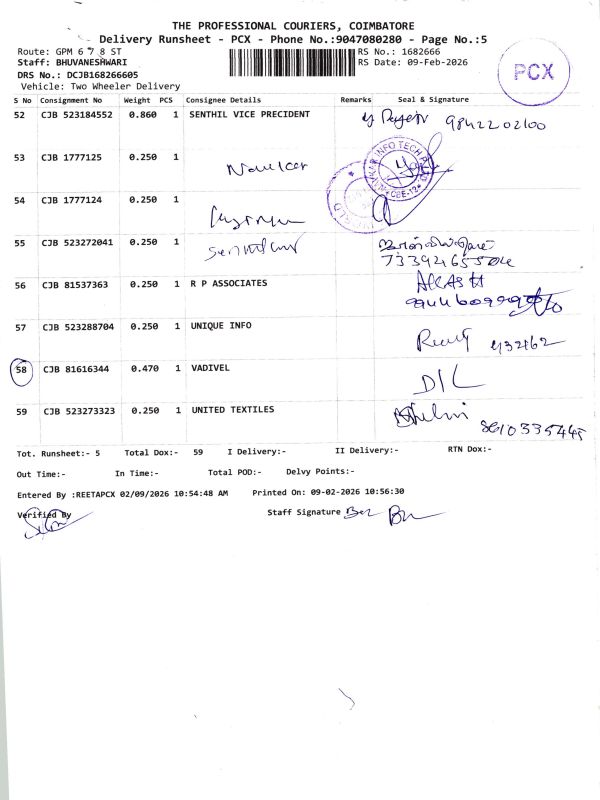 THE PROFESSIONAL COURIERS, COIMBATORE
Delivery Runsheet - PCX - Phone No.:9047080280 - Page No.:5
Route: GPM 6 7 8 ST
RS No.: 1682666
Staff: BHUVANESHWARI
RS Date: 09-Feb-2026
DRS No.: DCJB168266605
Vehicle: Two Wheeler Delivery
PCX
S No Consignment No Weight PCS Consignee Details Remarks Seal & Signature
52 CJB 523184552 0.860 1 SENTHIL VICE PRECIDENT 9842202100
53 CJB 1777125 0.250 1
54 CJB 1777124 0.250 1
55 CJB 523272041 0.250 1
56 CJB 81537363 0.250 1 R P ASSOCIATES
57 CJB 523288704 0.250 1 UNIQUE INFO
58 CJB 81616344 0.470 1 VADIVEL D/L
59 CJB 523273323 0.250 1 UNITED TEXTILES
Tot. Runsheet:- 5 Total Dox:- 59 I Delivery:- II Delivery:- RTN Dox:-
Out Time:- In Time:- Total POD:- Delvy Points:-
Entered By :REETAPCX 02/09/2026 10:54:48 AM Printed On: 09-02-2026 10:56:30
Verified By Staff Signature